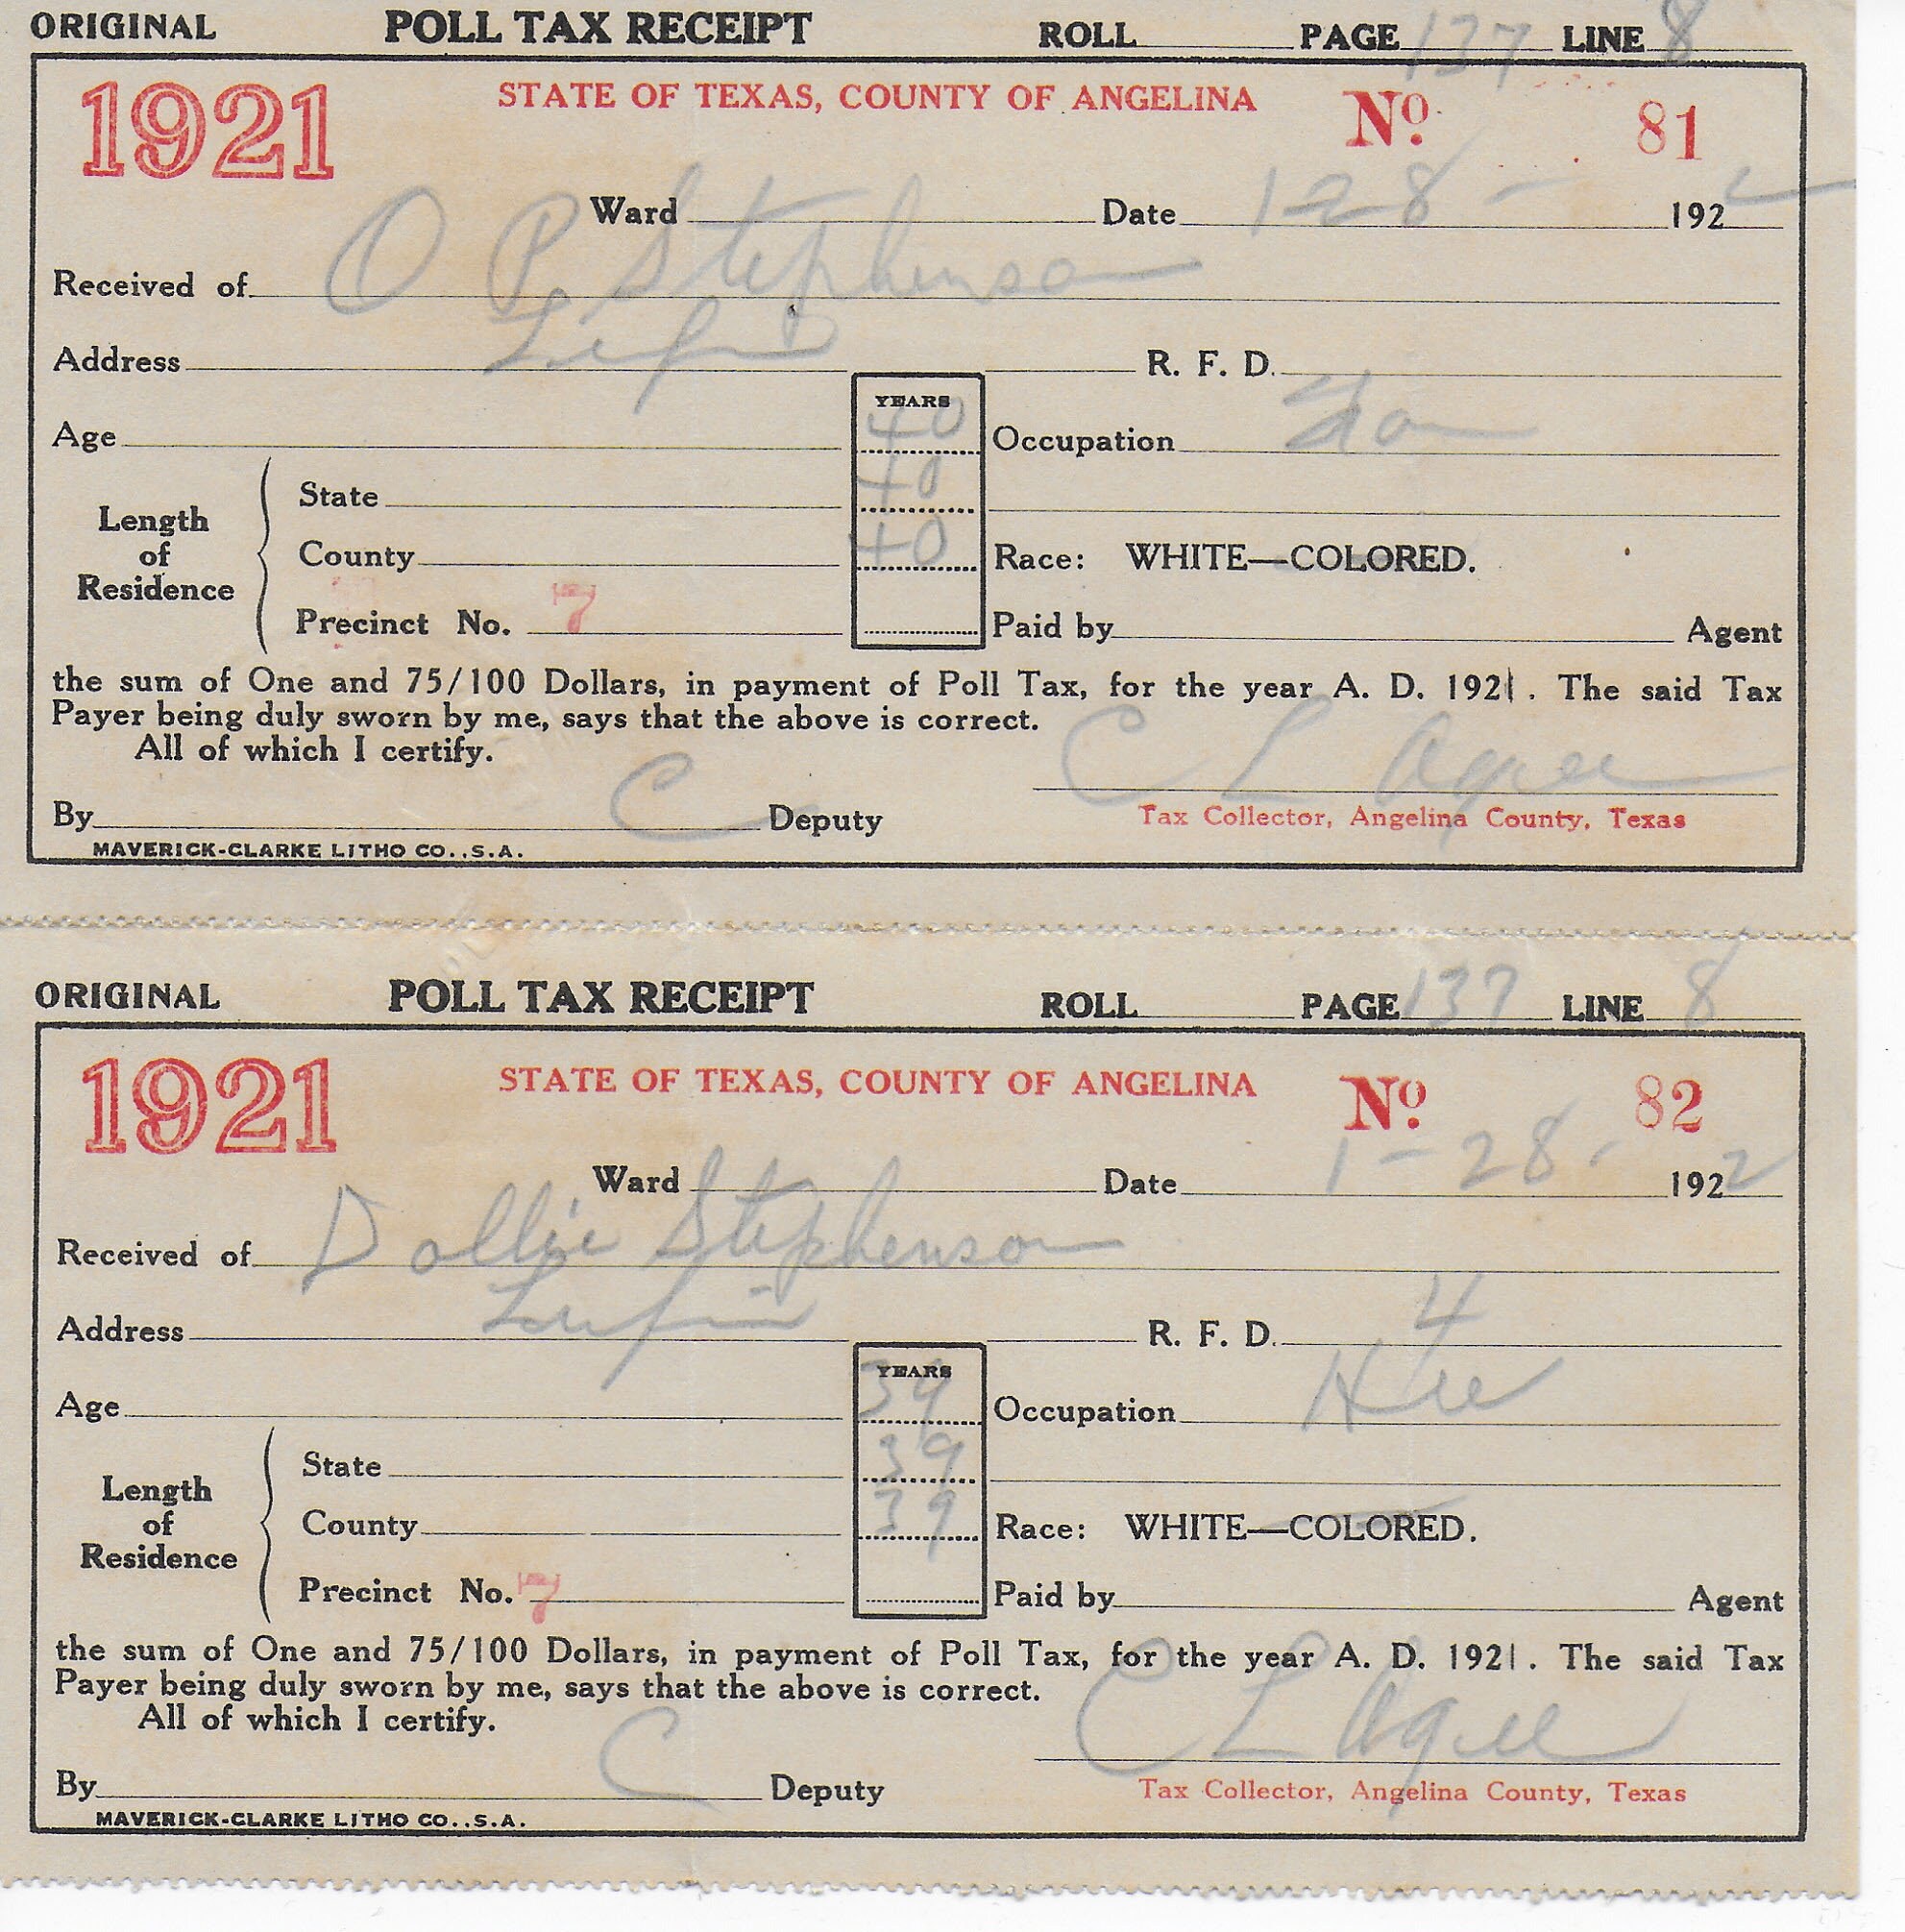 ORIGINAL POLL TAX RECEIPT ROLL PAGE 137 LINE 8
1921 STATE OF TEXAS, COUNTY OF ANGELINA No. 81
Ward Date 1-28- 1922
Received of O P. Stephenson
Address Lufkin R. F. D.
YEARS
Age 40 Occupation
State 40
Length of Residence
County 40 Race: WHITE—COLORED.
Precinct No. 7 Paid by Agent
the sum of One and 75/100 Dollars, in payment of Poll Tax, for the year A. D. 1921. The said Tax
Payer being duly sworn by me, says that the above is correct.
All of which I certify.
C L Agee
By C Deputy Tax Collector, Angelina County, Texas
MAVERICK-CLARKE LITHO CO., S.A.
ORIGINAL POLL TAX RECEIPT ROLL PAGE 137 LINE 8
1921 STATE OF TEXAS, COUNTY OF ANGELINA No. 82
Ward Date 1-28- 1922
Received of Dollie Stephenson
Address Lufkin R. F. D. 4
YEARS
Age 39 Occupation
State 39
Length of Residence
County 39 Race: WHITE—COLORED.
Precinct No. 7 Paid by Agent
the sum of One and 75/100 Dollars, in payment of Poll Tax, for the year A. D. 1921. The said Tax
Payer being duly sworn by me, says that the above is correct.
All of which I certify.
C L Agee
By C Deputy Tax Collector, Angelina County, Texas
MAVERICK-CLARKE LITHO CO., S.A.